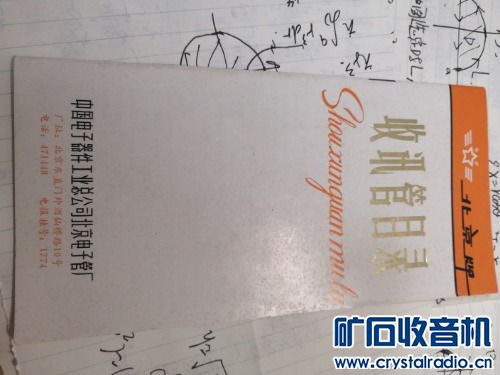 北京牌
收讯管目录
Shouxunguan mulu
中国电子器件工业总公司北京电子管厂
厂址：北京东直门外酒仙桥路10号
电话：471448 电报挂号：1774
矿石收音机
www.crystalradio.cn